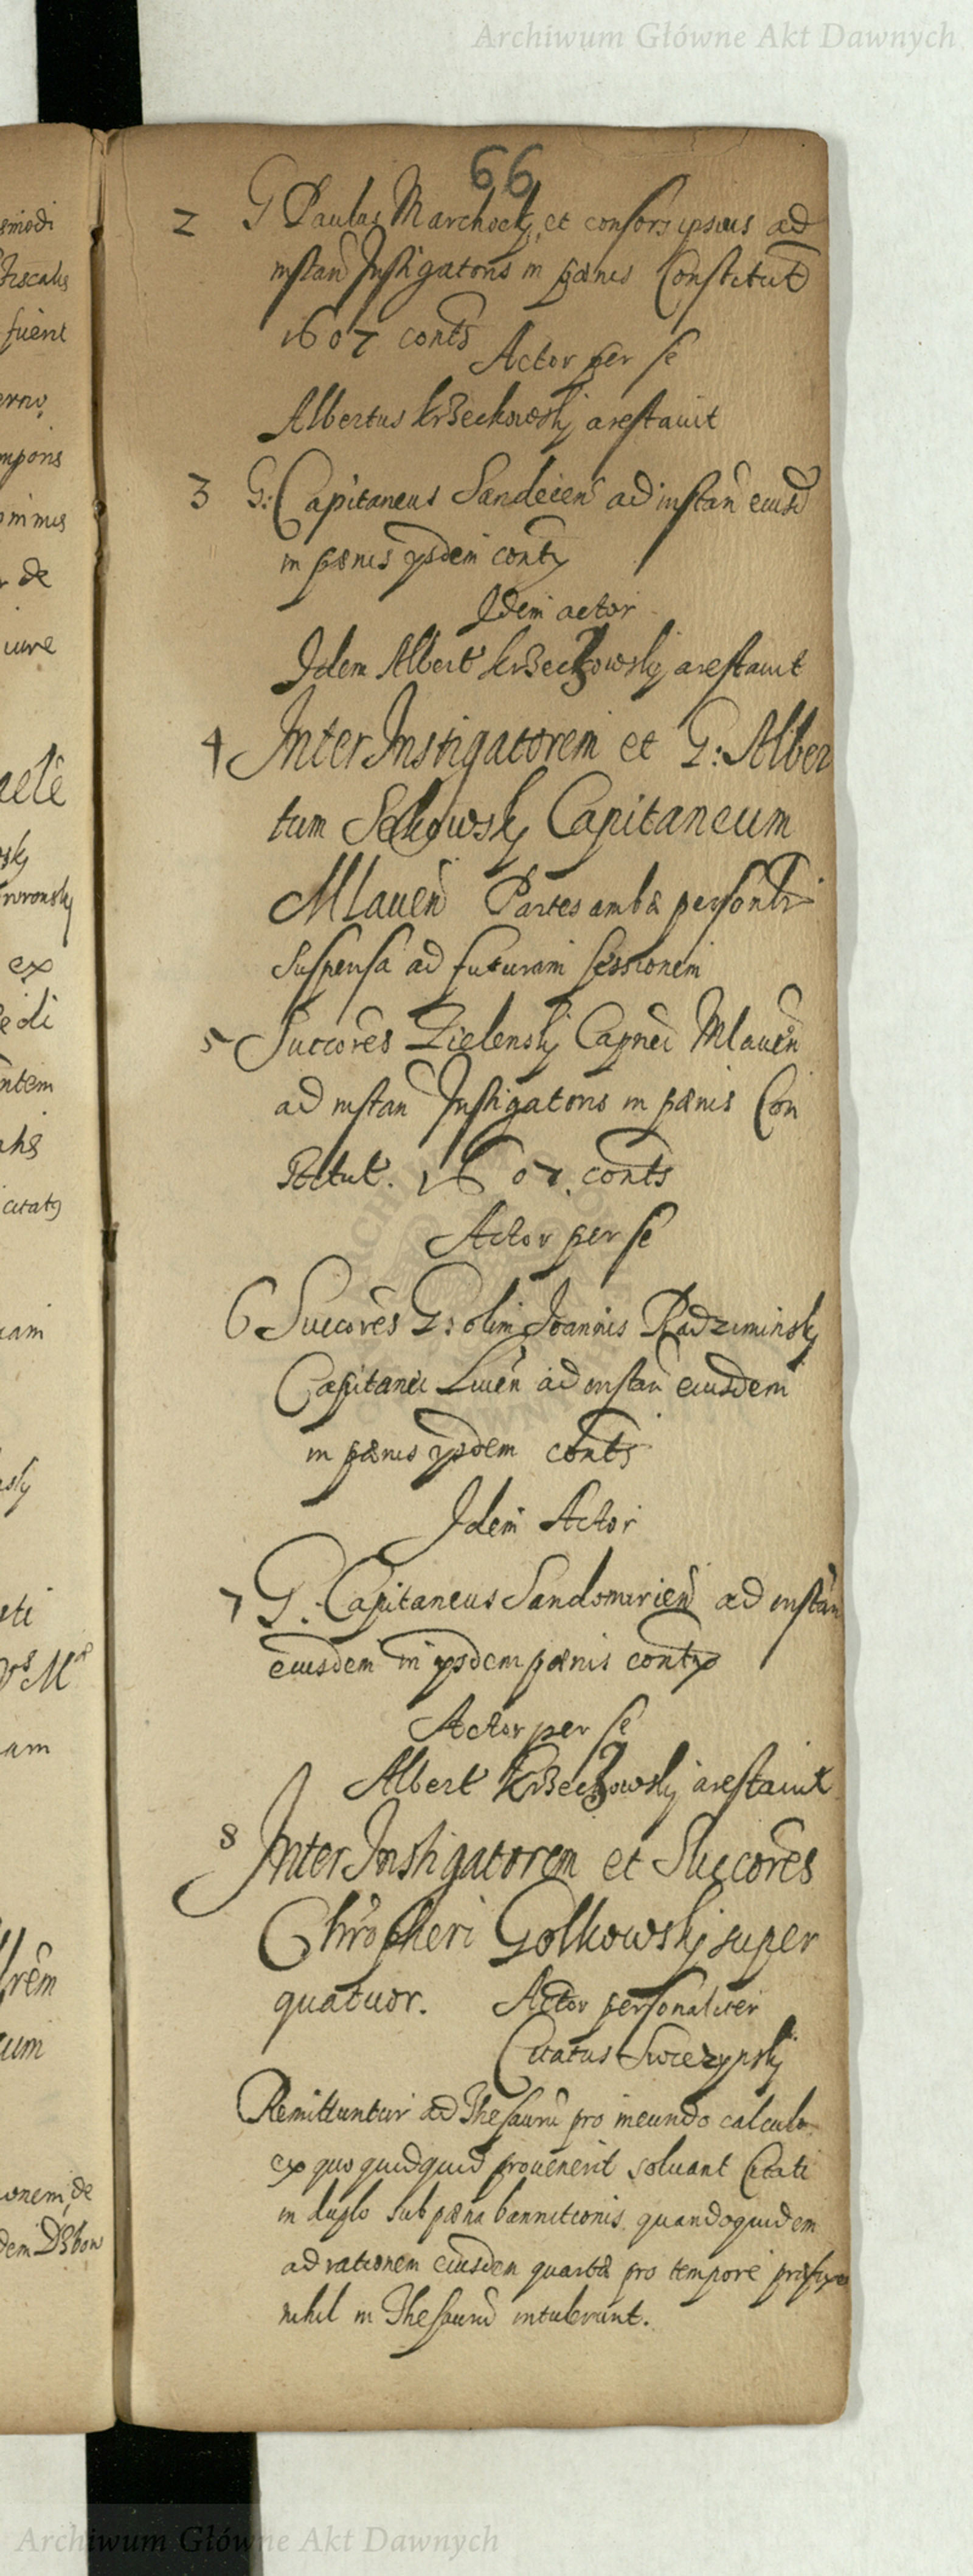 Archiwum Główne Akt Dawnych
66
2 G Paulus Marchocky et consors ipsius ad
instan Instigatoris in pænis Constitut
1607 conts
Actor per se
Albertus krzeckowsky arestauit
3 G: Capitaneus Sandecen ad instan eiusd
in pænis ysdem contx
Idem actor
Idem Albert krzeckowsky arestauit
4 Inter Instigatorem et G: Alber
tum Sekowsky Capitaneum
Mlauen Partes ambæ personlr
suspensa ad futuram sessionem
5 Succores Zielensky Capnei Mlauen
ad instan Instigatoris in pænis Con
stitut. 1607. conts
Actor per se
6 Succores G: olim Joannis Radziminsky
Capitanei Liuen ad instan eiusdem
in pænis ysdem conts
Idem Actor
7 G. Capitaneus Sandomirien ad instan
eiusdem in ysdem pænis contx
Actor per se
Albert krzeckowsky arestauit
8 Inter Instigatorem et Succores
Chropheri Golkowsky super
quatuor. Actor personaliter
Citatus Swiezynsky
Remittuntur ad Thesauru pro ineundo calculo
ex quo quidquid prouenerit soluant Citati
in duplo sub pæna bannitionis quandoquidem
ad rationem eiusdem quartæ pro tempore præfixo
nihil in Thesauru intulerunt.
smodi
fiscalis
fuerit
erno
mporis
ominus
r de
iure
sky
ex
e di
ntem
citatq
iam
sky
am
rem
cum
ionem, de
Archiwum Główne Akt Dawnych